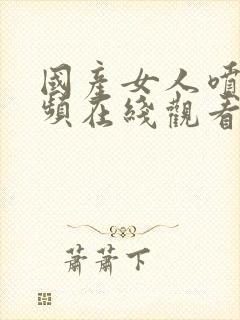 國產女人噴
頻在綫觀看
蕭蕭下